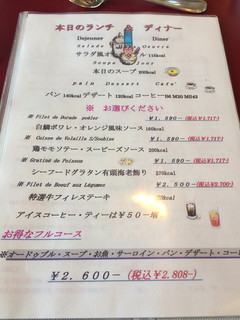 本日のランチ & ディナー
Dejeuner Diner
Salade Oeuvre
サラダ風オードブル 115kcal
Soupe Jour
本日のスープ 200kcal
pain Dessert Cafe'
パン 140kcal デザート 120kcal コーヒー B6 M20 MB43
※ お選びください
※ Filet de Dorade poeler ¥1,590-(税込¥1,717)
白鯛ポワレ・オレンジ風味ソース 160kcal
※ Cuisse de Volaille S/Soubise ¥1,590-(税込¥1,717)
鶏モモソテー・スービーズソース 200kcal
※ Gratiné de Poisson ¥1,590-(税込¥1,717)
シーフードグラタン有頭海老飾り 270kcal
※ Filet de Boeuf aux Légumes ¥2,500-(税込¥2,700)
特選牛フィレステーキ 270kcal
アイスコーヒー・ティーは¥50-増
お得なフルコース
※オードゥブル・スープ・お魚・サーロイン・パン・デザート・コー
¥2,600-(税込¥2,808-)